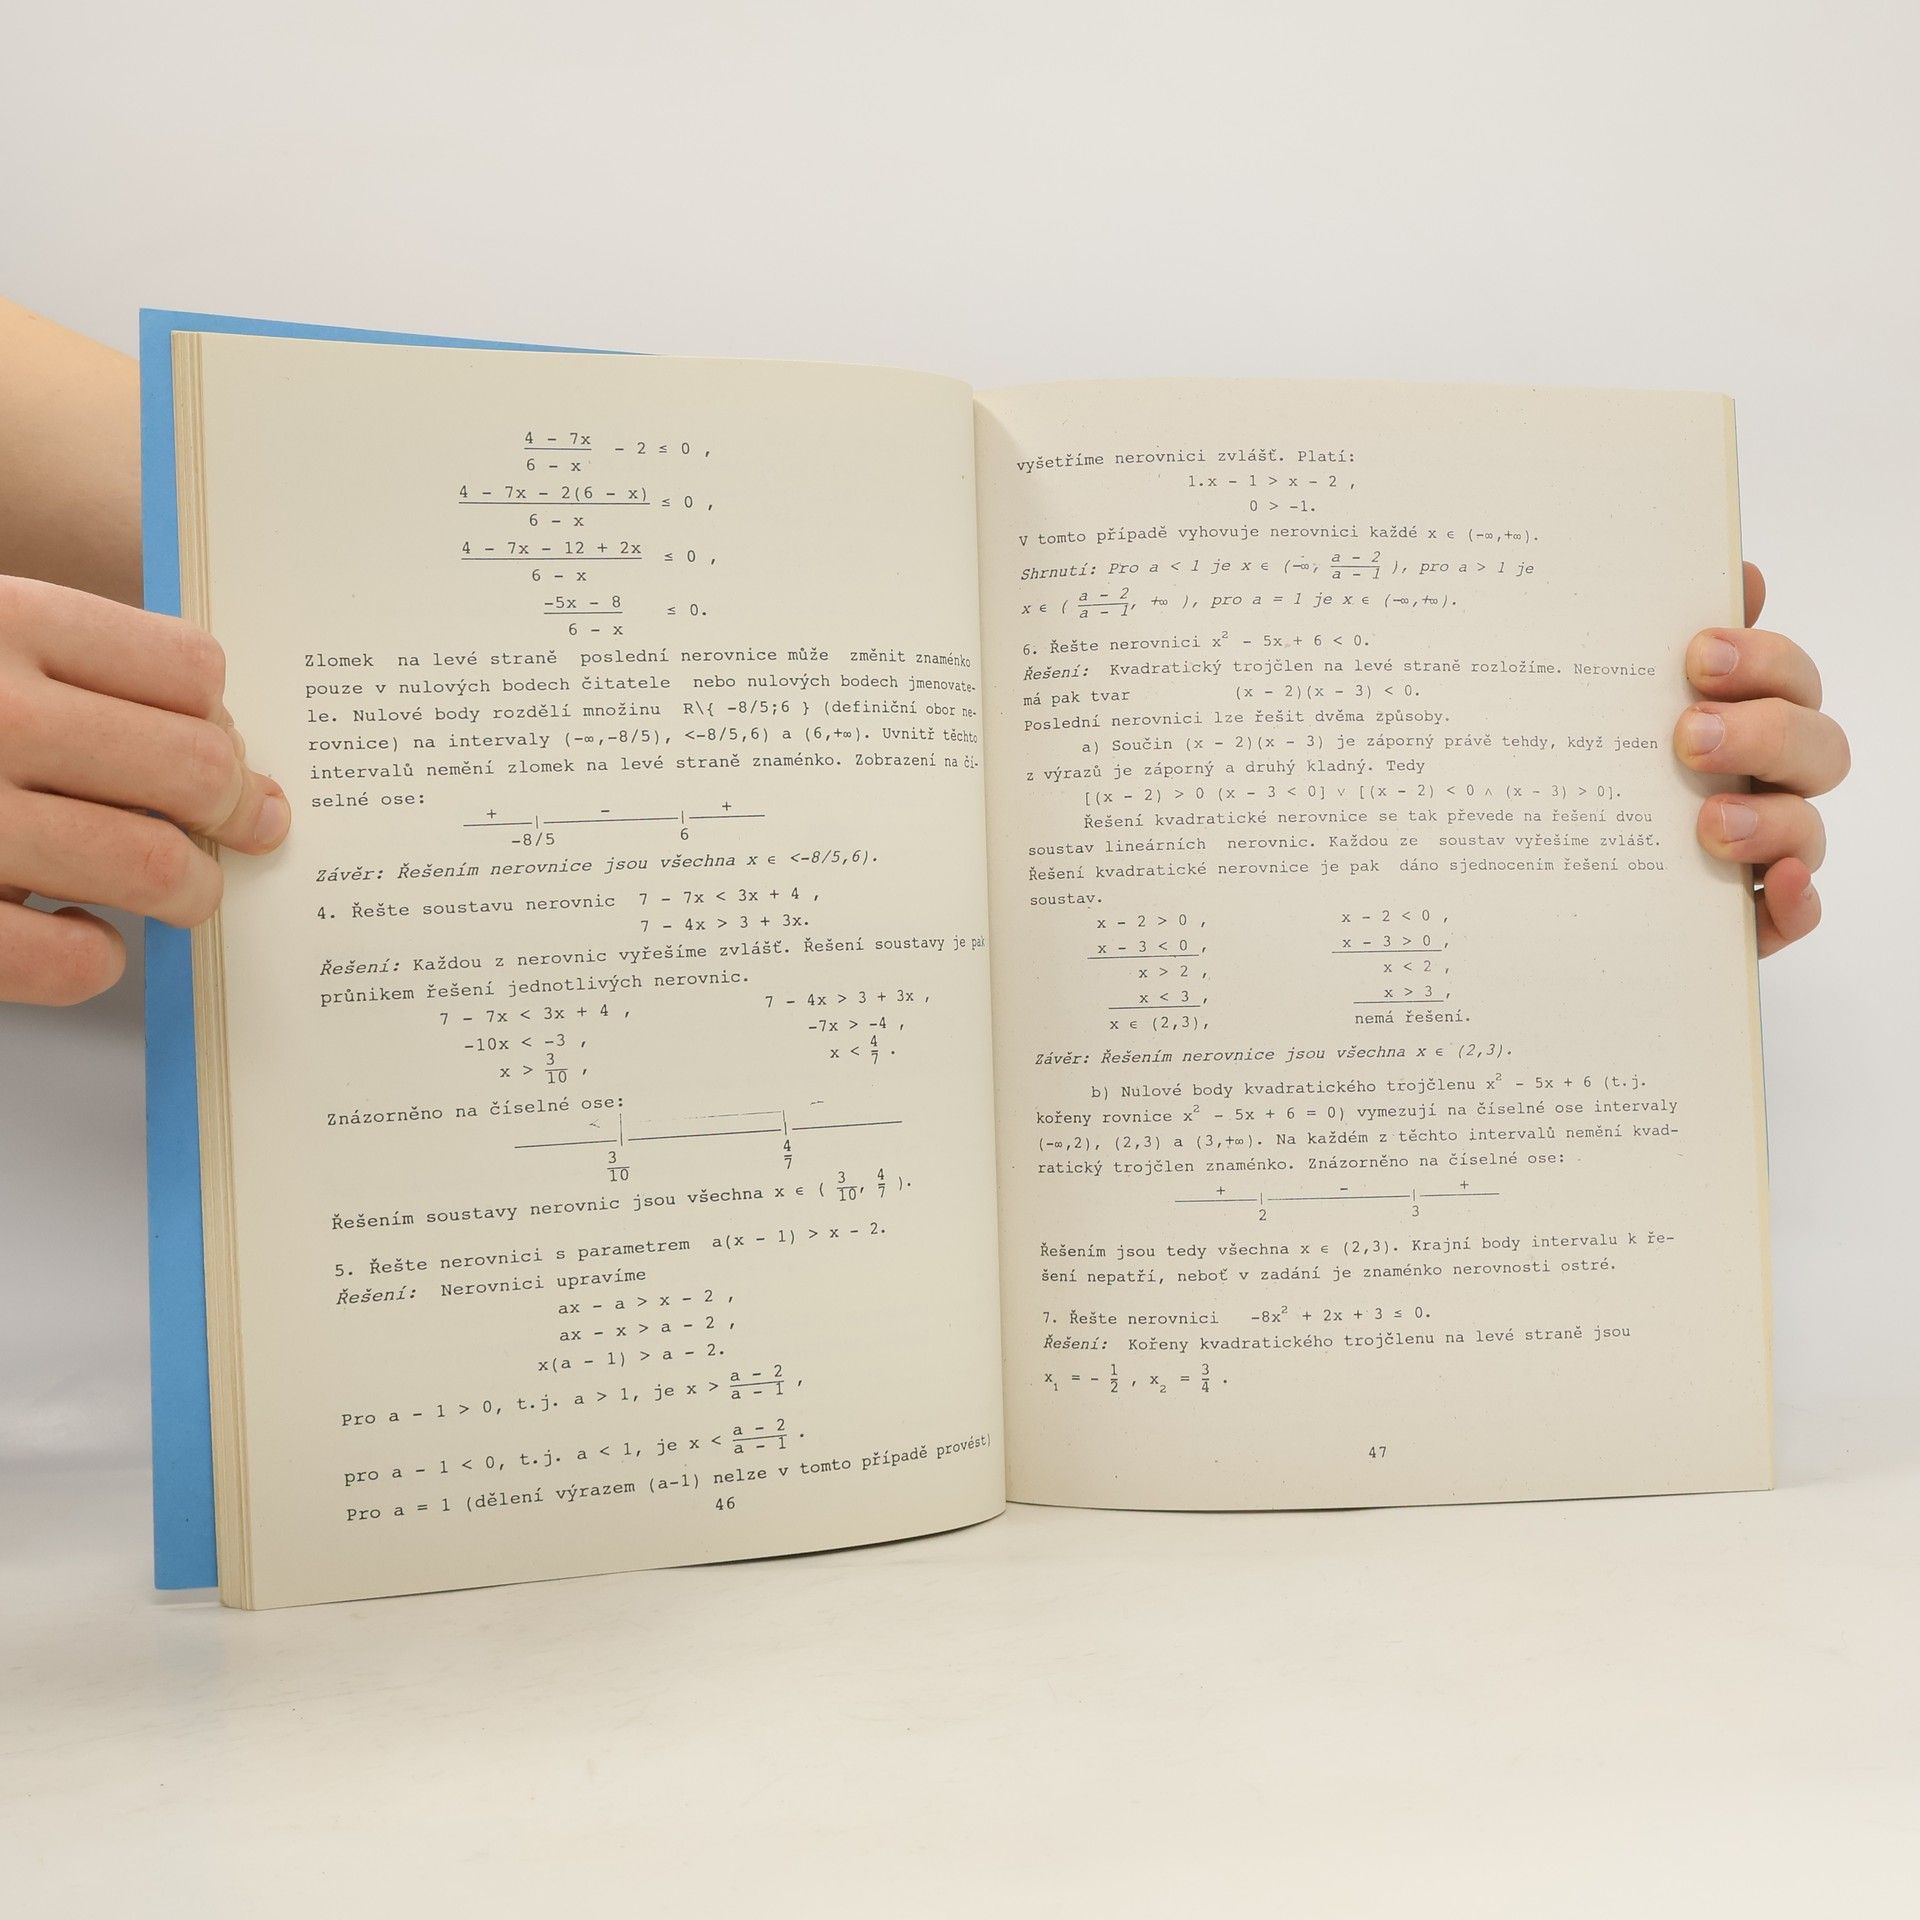 4 - 7x
────── - 2 ≤ 0 ,
6 - x
4 - 7x - 2(6 - x)
───────────────── ≤ 0 ,
6 - x
4 - 7x - 12 + 2x
──────────────── ≤ 0 ,
6 - x
-5x - 8
─────── ≤ 0.
6 - x
Zlomek na levé straně poslední nerovnice může změnit znaménko
pouze v nulových bodech čitatele nebo nulových bodech jmenovate-
le. Nulové body rozdělí množinu R\{ -8/5;6 } (definiční obor ne-
rovnice) na intervaly (-∞,-8/5), <-8/5,6) a (6,+∞). Uvnitř těchto
intervalů nemění zlomek na levé straně znaménko. Zobrazení na čí-
selné ose:
+ - +
-8/5 6
Závěr: Řešením nerovnice jsou všechna x ∈ <-8/5,6).
4. Řešte soustavu nerovnic 7 - 7x < 3x + 4 ,
7 - 4x > 3 + 3x.
Řešení: Každou z nerovnic vyřešíme zvlášť. Řešení soustavy je pak
průnikem řešení jednotlivých nerovnic.
7 - 7x < 3x + 4 , 7 - 4x > 3 + 3x ,
-10x < -3 , -7x > -4 ,
x > 3/10 , x < 4/7 .
Znázorněno na číselné ose:
3/10 4/7
Řešením soustavy nerovnic jsou všechna x ∈ ( 3/10, 4/7 ).
5. Řešte nerovnici s parametrem a(x - 1) > x - 2.
Řešení: Nerovnici upravíme
ax - a > x - 2 ,
ax - x > a - 2 ,
x(a - 1) > a - 2.
Pro a - 1 > 0, t.j. a > 1, je x > (a - 2)/(a - 1) ,
pro a - 1 < 0, t.j. a < 1, je x < (a - 2)/(a - 1) .
Pro a = 1 (dělení výrazem (a-1) nelze v tomto případě provést)
46
vyšetříme nerovnici zvlášť. Platí:
1.x - 1 > x - 2 ,
0 > -1.
V tomto případě vyhovuje nerovnici každé x ∈ (-∞,+∞).
Shrnutí: Pro a < 1 je x ∈ (-∞, (a - 2)/(a - 1) ), pro a > 1 je
x ∈ ( (a - 2)/(a - 1), +∞ ), pro a = 1 je x ∈ (-∞,+∞).
6. Řešte nerovnici x² - 5x + 6 < 0.
Řešení: Kvadratický trojčlen na levé straně rozložíme. Nerovnice
má pak tvar (x - 2)(x - 3) < 0.
Poslední nerovnici lze řešit dvěma způsoby.
a) Součin (x - 2)(x - 3) je záporný právě tehdy, když jeden
z výrazů je záporný a druhý kladný. Tedy
[(x - 2) > 0 (x - 3 < 0] ∨ [(x - 2) < 0 ∧ (x - 3) > 0].
Řešení kvadratické nerovnice se tak převede na řešení dvou
soustav lineárních nerovnic. Každou ze soustav vyřešíme zvlášť.
Řešení kvadratické nerovnice je pak dáno sjednocením řešení obou
soustav.
x - 2 > 0 , x - 2 < 0 ,
x - 3 < 0 , x - 3 > 0 ,
x > 2 , x < 2 ,
x < 3 , x > 3 ,
x ∈ (2,3), nemá řešení.
Závěr: Řešením nerovnice jsou všechna x ∈ (2,3).
b) Nulové body kvadratického trojčlenu x² - 5x + 6 (t.j.
kořeny rovnice x² - 5x + 6 = 0) vymezují na číselné ose intervaly
(-∞,2), (2,3) a (3,+∞). Na každém z těchto intervalů nemění kvad-
ratický trojčlen znaménko. Znázorněno na číselné ose:
+ - +
2 3
Řešením jsou tedy všechna x ∈ (2,3). Krajní body intervalu k ře-
šení nepatří, neboť v zadání je znaménko nerovnosti ostré.
7. Řešte nerovnici -8x² + 2x + 3 ≤ 0.
Řešení: Kořeny kvadratického trojčlenu na levé straně jsou
x₁ = - 1/2 , x₂ = 3/4 .
47